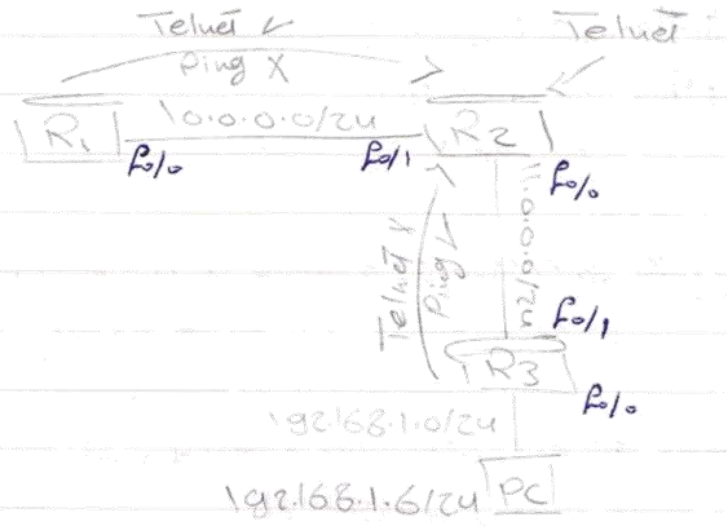 Telnet ✓
Telnet
Ping X
R1
10.0.0.0/24
R2
f0/0
f0/1
f0/0
Telnet X
Ping ✓
11.0.0.0/24
f0/1
R3
f0/0
192.168.1.0/24
192.168.1.6/24
PC